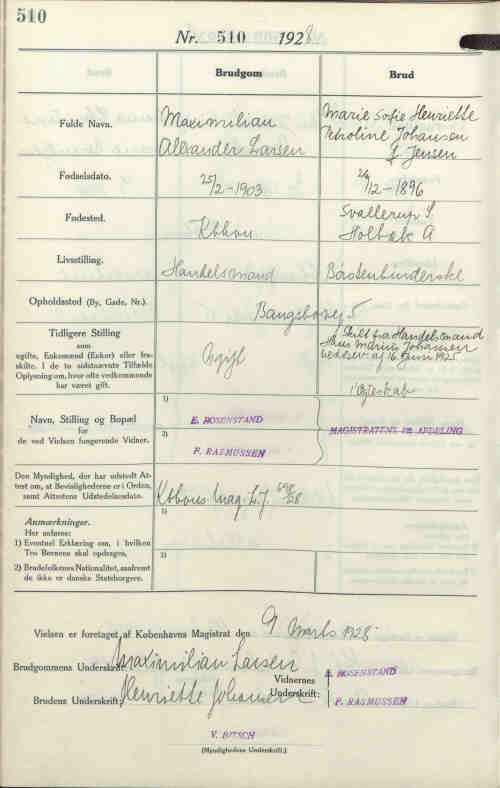 510
Nr. 510 1928
Brudgom
Brud
Fulde Navn.
Maximilian
Alexander Larsen
Marie Sofie Henriette
Petroline Johansen
f. Jensen
Fødselsdato.
25/2-1903
/12-1896
Fødested.
Kbhvn
Svallerup S.
Holbæk A
Livsstilling.
Handelsmand
Børstenbinderske
Opholdssted (By, Gade, Nr.).
Bangsbovej 5
Tidligere Stilling
som
ugifte, Enkemænd (Enker) eller fra-
skilte. I de to sidstnævnte Tilfælde
Oplysning om, hvor ofte vedkommende
har været gift.
Ugift
Skilt fra Handelsmand
Hans Marius Johansen
bev. af 16 Juni 1925
1' Ægteskab
Navn, Stilling og Bopæl
for
de ved Vielsen fungerende Vidner.
1)
E. ROSENSTAND
2)
F. RASMUSSEN
MAGISTRATENS AFDELING
Den Myndighed, der har udstedt At-
test om, at Bevislighederne er i Orden,
samt Attestens Udstedelsesdato.
Kbhvns Mag. /28
Anmærkninger.
Her anføres:
1) Eventuel Erklæring om, i hvilken
Tro Børnene skal opdrages.
2) Brudefolkenes Nationalitet, saafremt
de ikke er danske Statsborgere.
1)
2)
Vielsen er foretaget af Københavns Magistrat den 9 Marts 1928
Brudgommens Underskrift: Maximilian Larsen
Brudens Underskrift: Henriette Johansen
Vidnernes
Underskrift:
E. ROSENSTAND
F. RASMUSSEN
V. BITSCH
(Myndighedens Underskrift.)